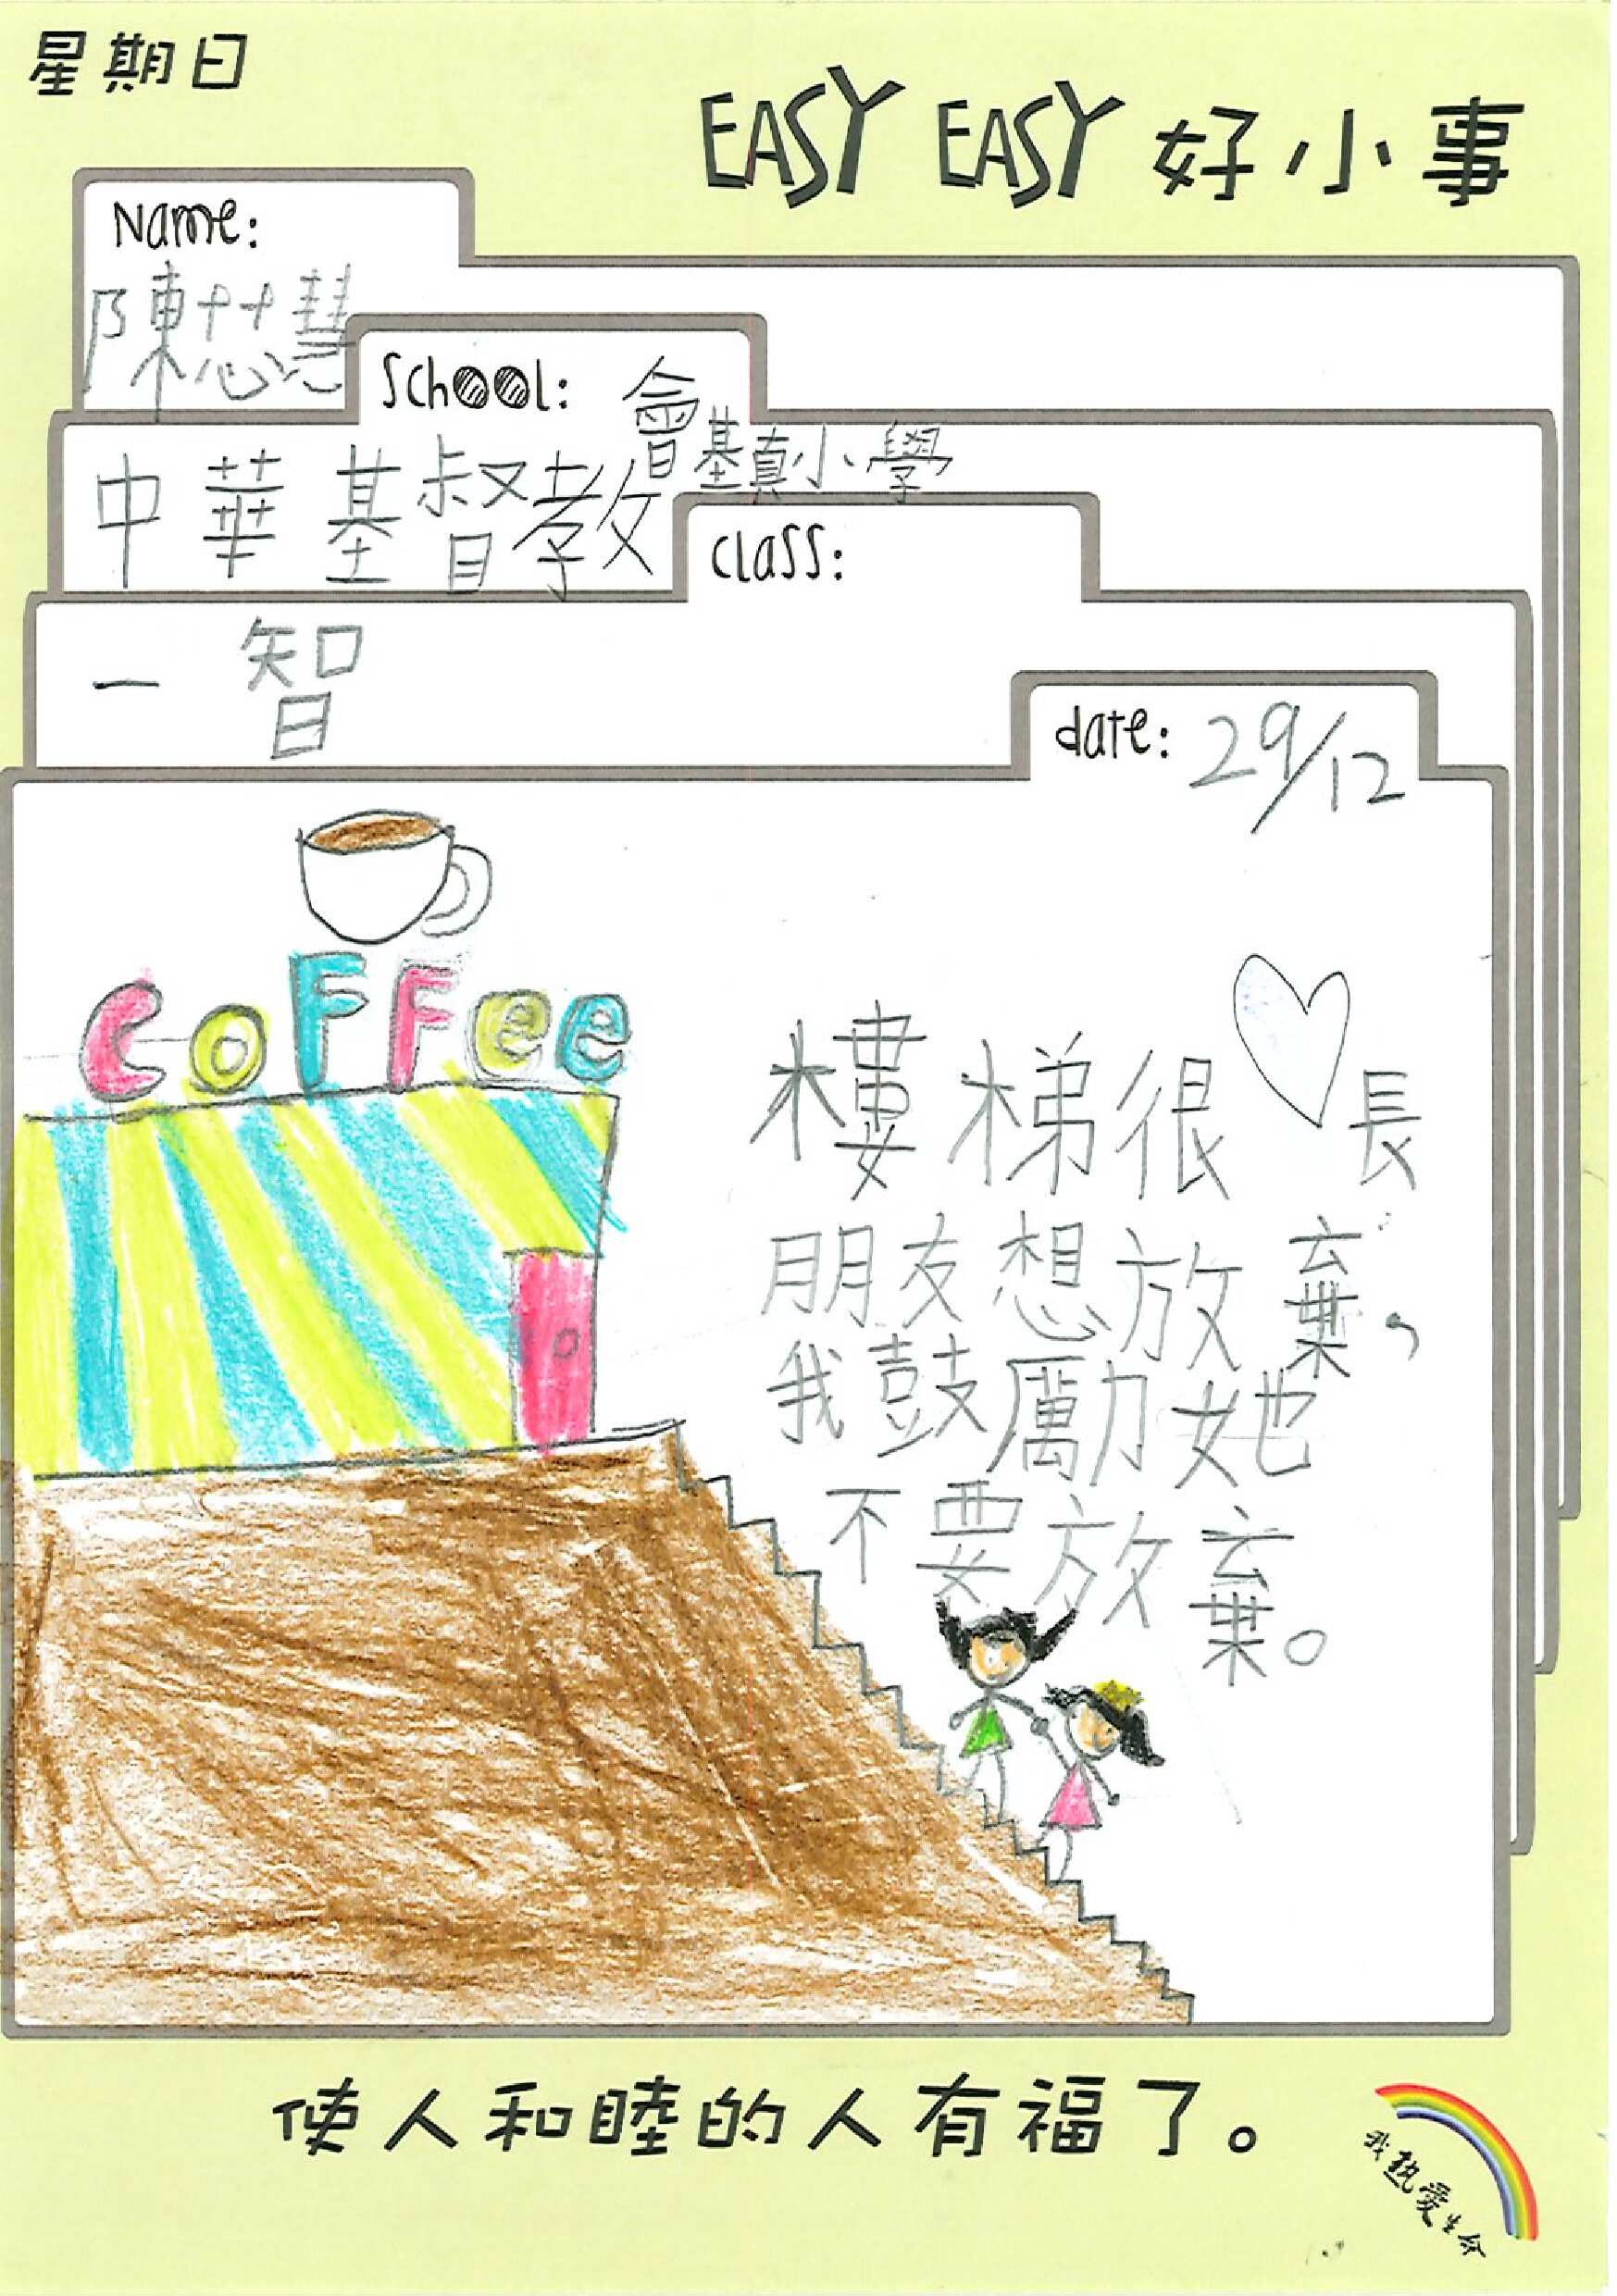 星期日
EASY EASY 好小事
Name:
陳芯慧
School: 會基真小學
中華基督教
Class:
一智
date: 29/12
COFFee
樓梯很長
朋友想放棄，
我鼓勵她
不要放棄。
使人和睦的人有福了。
我熱愛生命